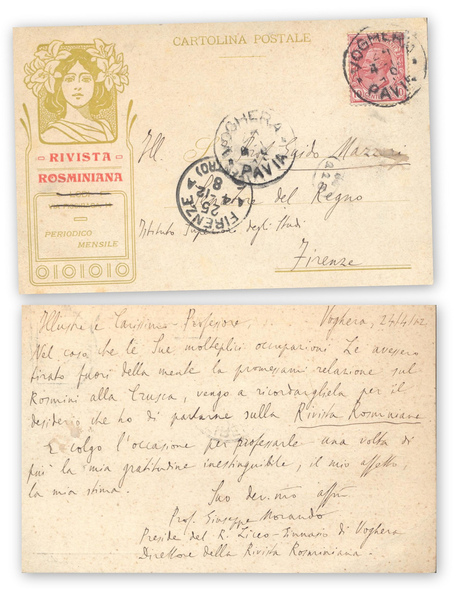 CARTOLINA POSTALE
VOGHERA
PAVIA
RIVISTA
ROSMINIANA
PERIODICO
MENSILE
Ill.
VOGHERA
PAVIA
FIRENZE
25 4 12 A
8
del Regno
Istituto degli Studi
Firenze
Illustre e Carissimo Professore, Voghera, 24/4/
Nel caso che le Sue molteplici occupazioni Le avessero
tirato fuori della mente la promessami relazione sul
Rosmini alla Crusca, vengo a ricordargliela per il
desiderio che ho di parlarne sulla Rivista Rosminiana
E colgo l'occasione per professarle una volta di
più la mia gratitudine inestinguibile, il mio affetto,
la mia stima.
Suo dev.mo
Prof. Giuseppe Morando
Preside del R. Liceo-Ginnasio di Voghera
Direttore della Rivista Rosminiana.